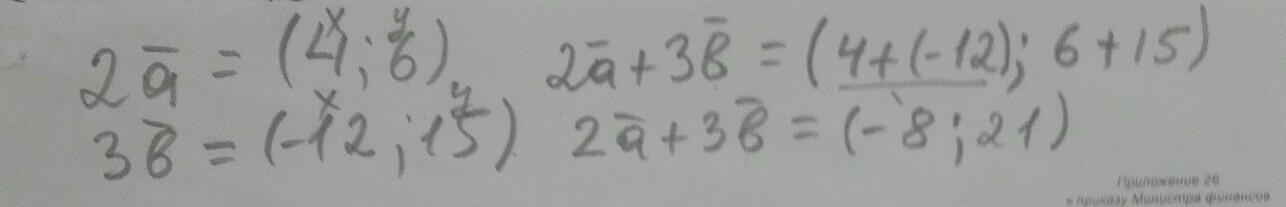 2a̅ = (4; 6) 2a̅ + 3b̅ = (4 + (-12); 6 + 15)
x y
3b̅ = (-12; 15) 2a̅ + 3b̅ = (-8; 21)
x y
Приложение 26
к приказу Министра финансов